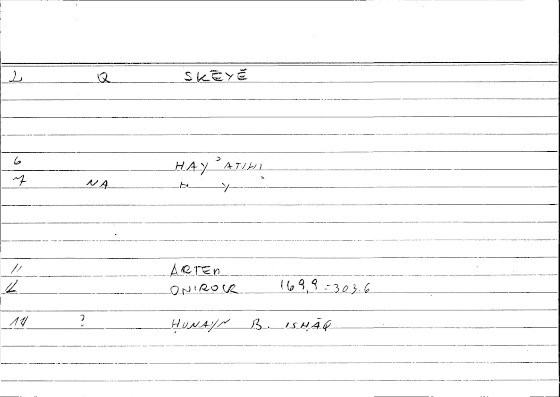 2 Q SKĒYĒ
6 HAY'ATIHI
7 NA H Y
11 ARTEM
12 ONIROCR 169,9 = 303.6
14 ? ḤUNAYN B. ISḤĀQ